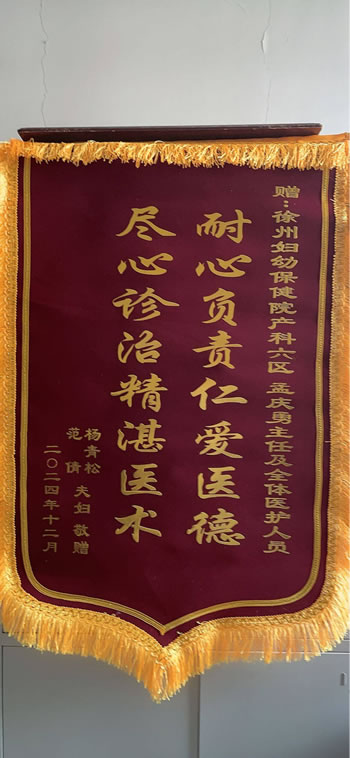 赠：徐州妇幼保健院产科六区 孟庆勇主任及全体医护人员
耐心负责仁爱医德
尽心诊治精湛医术
杨青松
范倩
夫妇 敬赠
二〇二四年十二月